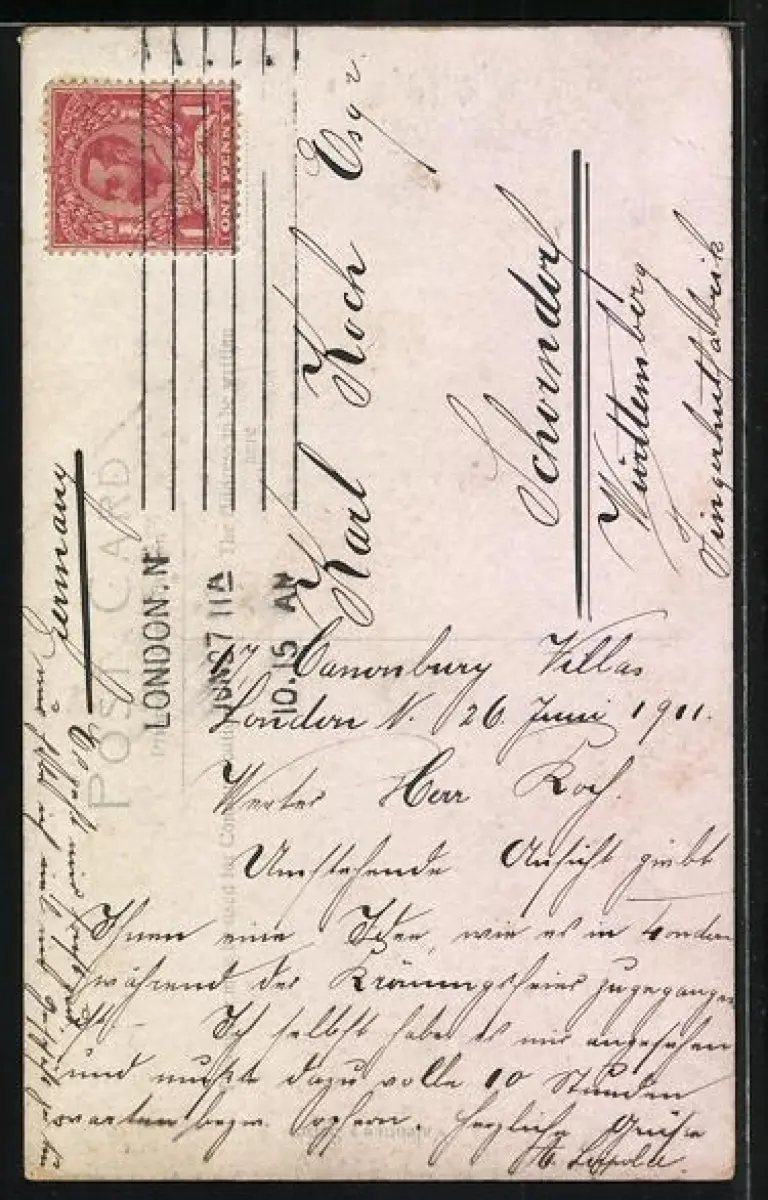 POST CARD
The Address to be written
here
ONE PENNY
LONDON. N
JUN 27 11A
10.15 AM
Karl Koch Esqr.
Schorndorf
Württemberg
Fingerhutfabrik
Germany
17 Canonbury Villas
London N. 26. Juni 1911.
Werter Herr Koch.
Umstehende Ansicht giebt
Ihnen eine Idee, wie es in London
während der Krönungsfeier zugegangen
ist. – Ich selbst habe es mir angesehen
und mußte dazu volle 10 Stunden
warten bezw. opfern. Herzliche Grüße